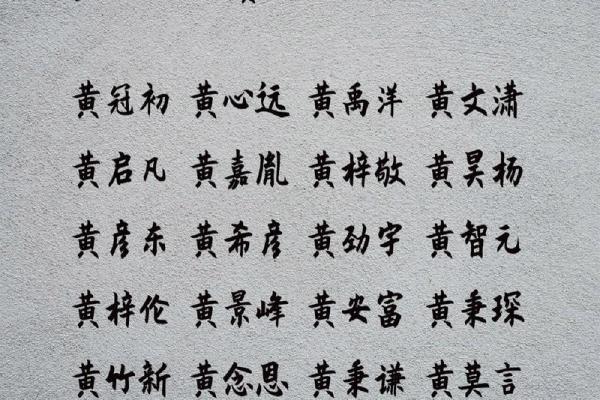 黄冠初 黄心远 黄禹洋 黄文潇
黄启凡 黄嘉胤 黄梓敬 黄昊杨
黄彦东 黄希彦 黄劲宇 黄智元
黄梓伦 黄景峰 黄安富 黄秉琛
黄竹新 黄念恩 黄秉谦 黄莫言